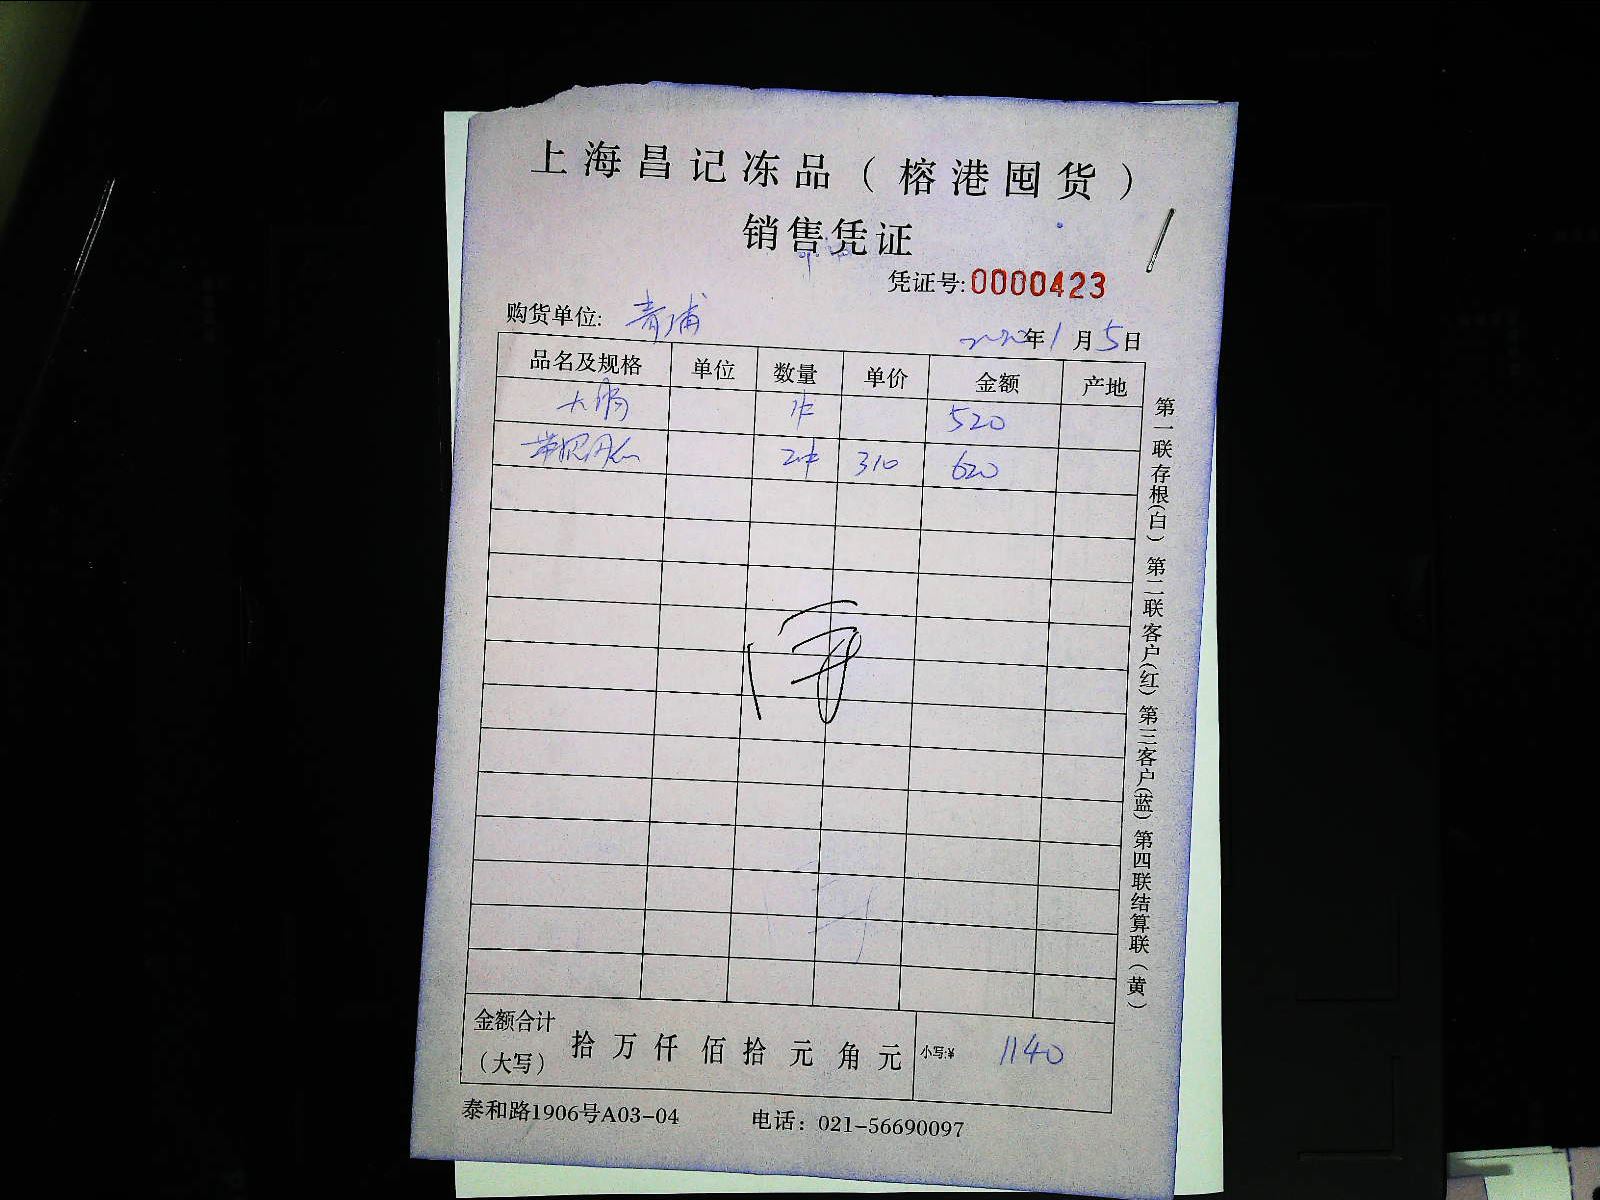 上海昌记冻品（榕港囤货）
销售凭证
凭证号:0000423
购货单位: 青浦
2020年1月5日
品名及规格 单位 数量 单价 金额 产地
大 1件 520
2件 310 620
金额合计（大写） 拾 万 仟 佰 拾 元 角 元 小写:¥ 1140
泰和路1906号A03-04 电话：021-56690097
第一联存根(白) 第二联客户(红) 第三客户(蓝) 第四联结算联(黄)